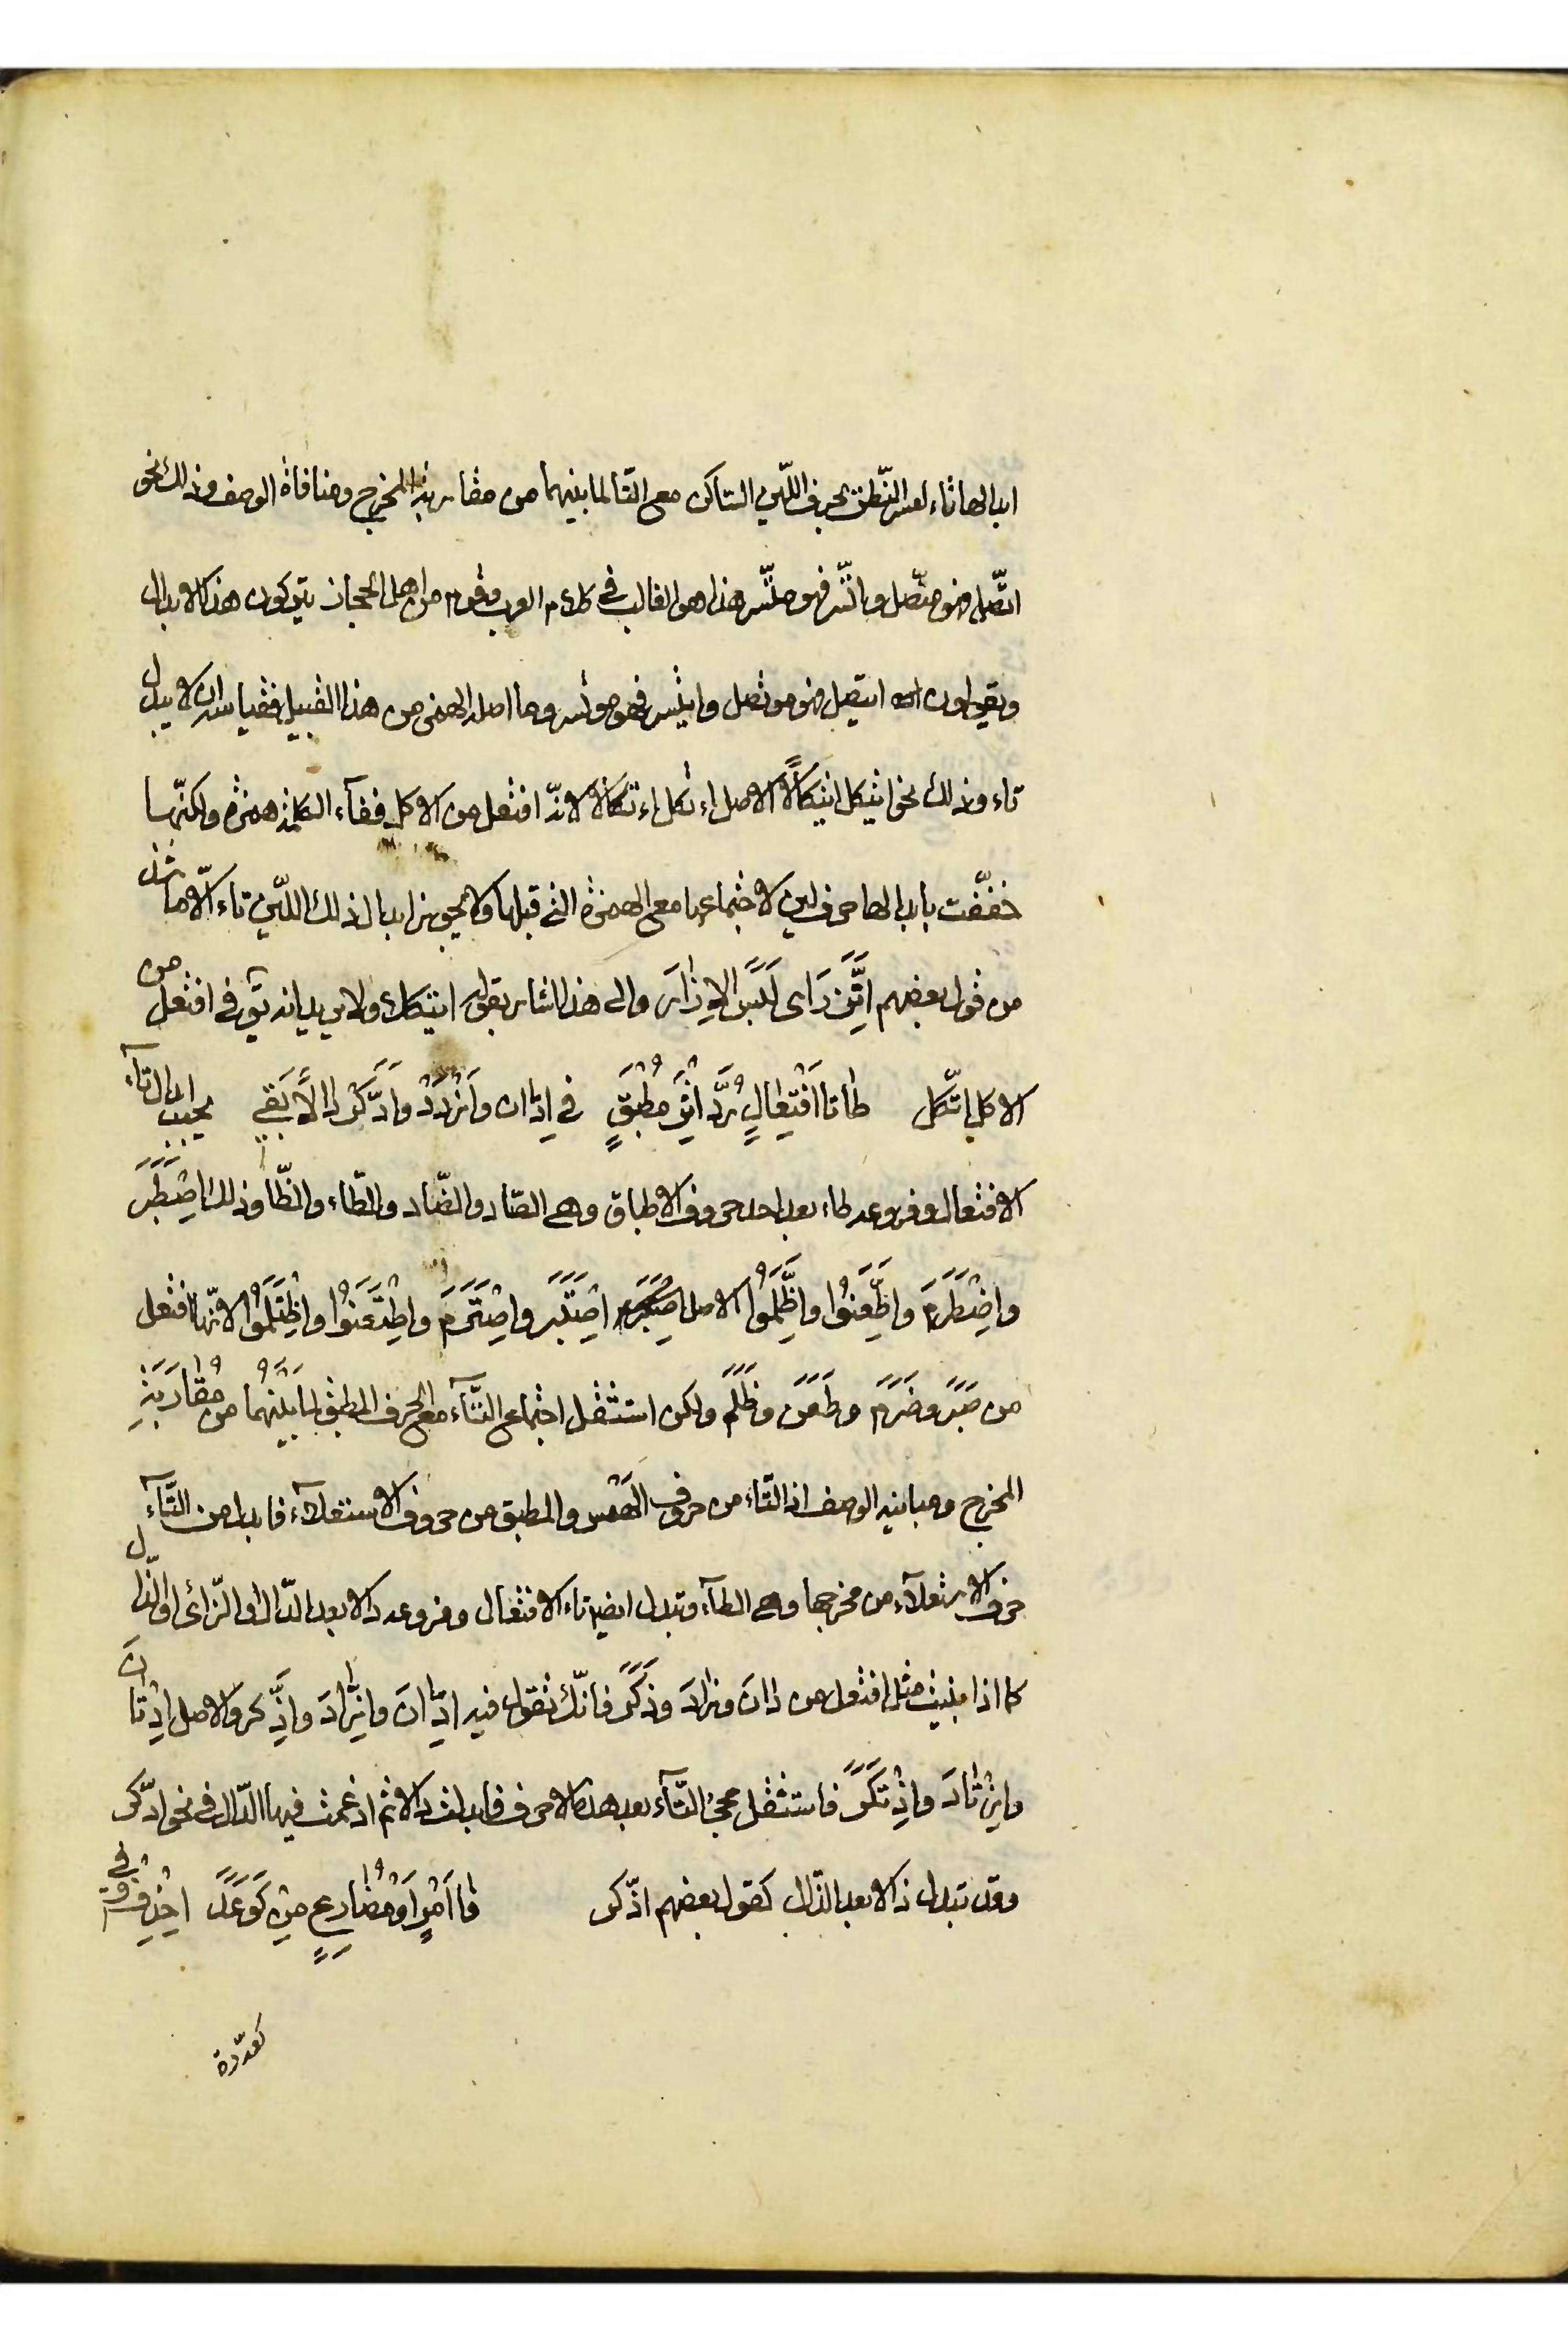 ابدالها تاء لعسر النّطق بحرف اللّين السّاكن مع التّا لما بينهما من مقاربة المخرج ومنافاة الوصف وذلك نحو
اتّصل فهو متّصل واتّسر فهو متّسر هذا هو الغالب في كلام العرب وقوم من اهل الحجاز يتركون هذا الابدال
ويقولون ايتصل فهو موتصل وايتسر فهو موتسر وما اصله الهمز من هذا القبيل فقياسه ان لا يبدل
تاء وذلك نحو ايتكل ايتكالًا الاصل اءتكل اءتكالا لانّه افتعل من الاكل ففآء الكلمة همزة ولكنّها
خفّفت بابدالها حرف لين لاجتماعها مع الهمزة التي قبلها ولا يجوز ابدال ذلك اللّين تاء الّا ما شذ
من قول بعضهم اتَّزَرَ اى لَبَسَ الاِزَارَ والى هذا اشار بقوله ايتكلا ولا يريد انه يق في افتعل من
الاكل اتّكل طَا تا اَفْتِعَالٍ رُدَّ اِثْرَ مُطْبَقٍ في اِدّان وَازْدَدْ وَادَّكِرْ دَالًا بَقِي يجب ابدال تآء
الافتعال وفروعه طاء بعد احد حروف الاطباق وهي الصّاد والضّاد والطّاء والظّا وذلك اصْطَبَرَ
واضْطَرَمَ واطَّعَنُوا واظَّلَمُوا الاصل اصْتَبَرَ واضْتَرَمَ واطْتَعَنُوا واظْتَلَمُوا لانّها افتعل
من صَبَرَ وضَرَمَ وطَعَنَ وظَلَمَ ولكن استثقل اجتماع التّآء مع الحرف المطبق لِمَا بَيْنَهُمَا من مُقَارَبَةِ
المخرج ومباينة الوصف اذ التّاء من حروف الهَمْس والمطبق من حروف الاستعلآء فابدل من التّآء
حرف الاستعلآء من مخرجها وهي الطآء وتبدل ايضا تاء الافتعال وفروعه دالا بعد الدّال او الزّاى او الذّال
كما اذا بنيت مثل افتعل من دَانَ وزَادَ وذَكَرَ فانّك تقول فيه ادّانَ وازدَادَ واذّكر والاصل ادْتَانَ
وازْتَادَ واذْتَكَرَ فاستثقل مجئ التّآء بعد هذه الاحرف فابدلت دالا ثم ادغمت فيها الدّال في نحو ادّكر
وقد تبدل ذالا بعد الذّال كقول بعضهم اذّكر فَا اَمْرٍ اَوْ مُضَارِعٍ مِنْ كَوَعَدَ احْذِفْ وفي
كعدّدة